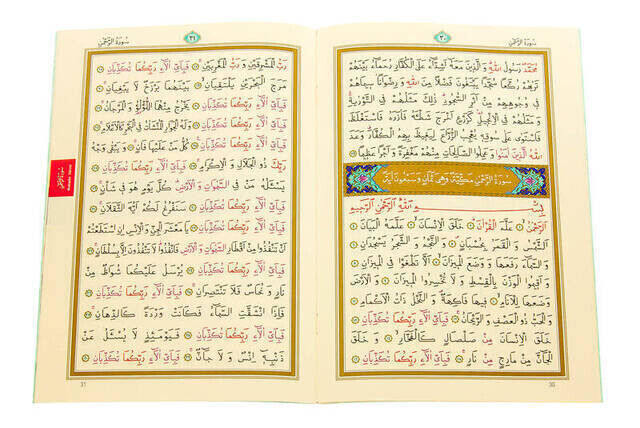 سُورَةُ الرَّحْمٰنِ ٣٠
مُحَمَّدٌ رَسُولُ اللّٰهِ وَ الَّذِينَ مَعَهُ اَشِدَّاءُ عَلَى الْكُفَّارِ رُحَمَاءُ بَيْنَهُمْ
تَرٰيهُمْ رُكَّعًا سُجَّدًا يَبْتَغُونَ فَضْلًا مِنَ اللّٰهِ وَ رِضْوَانًا سِيمَاهُمْ
فِي وُجُوهِهِمْ مِنْ اَثَرِ السُّجُودِ ذٰلِكَ مَثَلُهُمْ فِي التَّوْرٰيةِ
وَ مَثَلُهُمْ فِي الْاِنْجِيلِ كَزَرْعٍ اَخْرَجَ شَطْئَهُ فَاٰزَرَهُ فَاسْتَغْلَظَ
فَاسْتَوٰى عَلٰى سُوقِهِ يُعْجِبُ الزُّرَّاعَ لِيَغِيظَ بِهِمُ الْكُفَّارَ وَعَدَ
اللّٰهُ الَّذِينَ اٰمَنُوا وَ عَمِلُوا الصَّالِحَاتِ مِنْهُمْ مَغْفِرَةً وَ اَجْرًا عَظِيمًا
سُورَةُ الرَّحْمٰنِ مَكِّيَّةٌ وَهِيَ ثَمَانٍ وَسَبْعُونَ اٰيَةً
بِسْمِ اللّٰهِ الرَّحْمٰنِ الرَّحِيمِ
اَلرَّحْمٰنُ عَلَّمَ الْقُرْاٰنَ خَلَقَ الْاِنْسَانَ عَلَّمَهُ الْبَيَانَ
اَلشَّمْسُ وَ الْقَمَرُ بِحُسْبَانٍ وَ النَّجْمُ وَ الشَّجَرُ يَسْجُدَانِ
وَ السَّمَاءَ رَفَعَهَا وَ وَضَعَ الْمِيزَانَ اَلَّا تَطْغَوْا فِي الْمِيزَانِ
وَ اَقِيمُوا الْوَزْنَ بِالْقِسْطِ وَ لَا تُخْسِرُوا الْمِيزَانَ وَ الْاَرْضَ
وَضَعَهَا لِلْاَنَامِ فِيهَا فَاكِهَةٌ وَ النَّخْلُ ذَاتُ الْاَكْمَامِ
وَ الْحَبُّ ذُو الْعَصْفِ وَ الرَّيْحَانُ فَبِاَيِّ اٰلَاءِ رَبِّكُمَا تُكَذِّبَانِ
خَلَقَ الْاِنْسَانَ مِنْ صَلْصَالٍ كَالْفَخَّارِ وَ خَلَقَ
الْجَانَّ مِنْ مَارِجٍ مِنْ نَارٍ فَبِاَيِّ اٰلَاءِ رَبِّكُمَا تُكَذِّبَانِ
30
سُورَةُ الرَّحْمٰنِ ٣١
رَبُّ الْمَشْرِقَيْنِ وَ رَبُّ الْمَغْرِبَيْنِ فَبِاَيِّ اٰلَاءِ رَبِّكُمَا تُكَذِّبَانِ
مَرَجَ الْبَحْرَيْنِ يَلْتَقِيَانِ بَيْنَهُمَا بَرْزَخٌ لَا يَبْغِيَانِ
فَبِاَيِّ اٰلَاءِ رَبِّكُمَا تُكَذِّبَانِ يَخْرُجُ مِنْهُمَا اللُّؤْلُؤُ وَ الْمَرْجَانُ
فَبِاَيِّ اٰلَاءِ رَبِّكُمَا تُكَذِّبَانِ وَ لَهُ الْجَوَارِ الْمُنْشَاٰتُ فِي الْبَحْرِ كَالْاَعْلَامِ
فَبِاَيِّ اٰلَاءِ رَبِّكُمَا تُكَذِّبَانِ كُلُّ مَنْ عَلَيْهَا فَانٍ وَ يَبْقٰى وَجْهُ
رَبِّكَ ذُو الْجَلَالِ وَ الْاِكْرَامِ فَبِاَيِّ اٰلَاءِ رَبِّكُمَا تُكَذِّبَانِ
يَسْئَلُهُ مَنْ فِي السَّمٰوَاتِ وَ الْاَرْضِ كُلَّ يَوْمٍ هُوَ فِي شَأْنٍ
فَبِاَيِّ اٰلَاءِ رَبِّكُمَا تُكَذِّبَانِ سَنَفْرُغُ لَكُمْ اَيُّهَ الثَّقَلَانِ
فَبِاَيِّ اٰلَاءِ رَبِّكُمَا تُكَذِّبَانِ يَا مَعْشَرَ الْجِنِّ وَ الْاِنْسِ اِنِ اسْتَطَعْتُمْ
اَنْ تَنْفُذُوا مِنْ اَقْطَارِ السَّمٰوَاتِ وَ الْاَرْضِ فَانْفُذُوا لَا تَنْفُذُونَ اِلَّا بِسُلْطَانٍ
فَبِاَيِّ اٰلَاءِ رَبِّكُمَا تُكَذِّبَانِ يُرْسَلُ عَلَيْكُمَا شُوَاظٌ مِنْ
نَارٍ وَ نُحَاسٌ فَلَا تَنْتَصِرَانِ فَبِاَيِّ اٰلَاءِ رَبِّكُمَا تُكَذِّبَانِ
فَاِذَا انْشَقَّتِ السَّمَاءُ فَكَانَتْ وَرْدَةً كَالدِّهَانِ
فَبِاَيِّ اٰلَاءِ رَبِّكُمَا تُكَذِّبَانِ فَيَوْمَئِذٍ لَا يُسْئَلُ عَنْ
ذَنْبِهِ اِنْسٌ وَ لَا جَانٌّ فَبِاَيِّ اٰلَاءِ رَبِّكُمَا تُكَذِّبَانِ
31
سُورَةُ الرَّحْمٰنِ